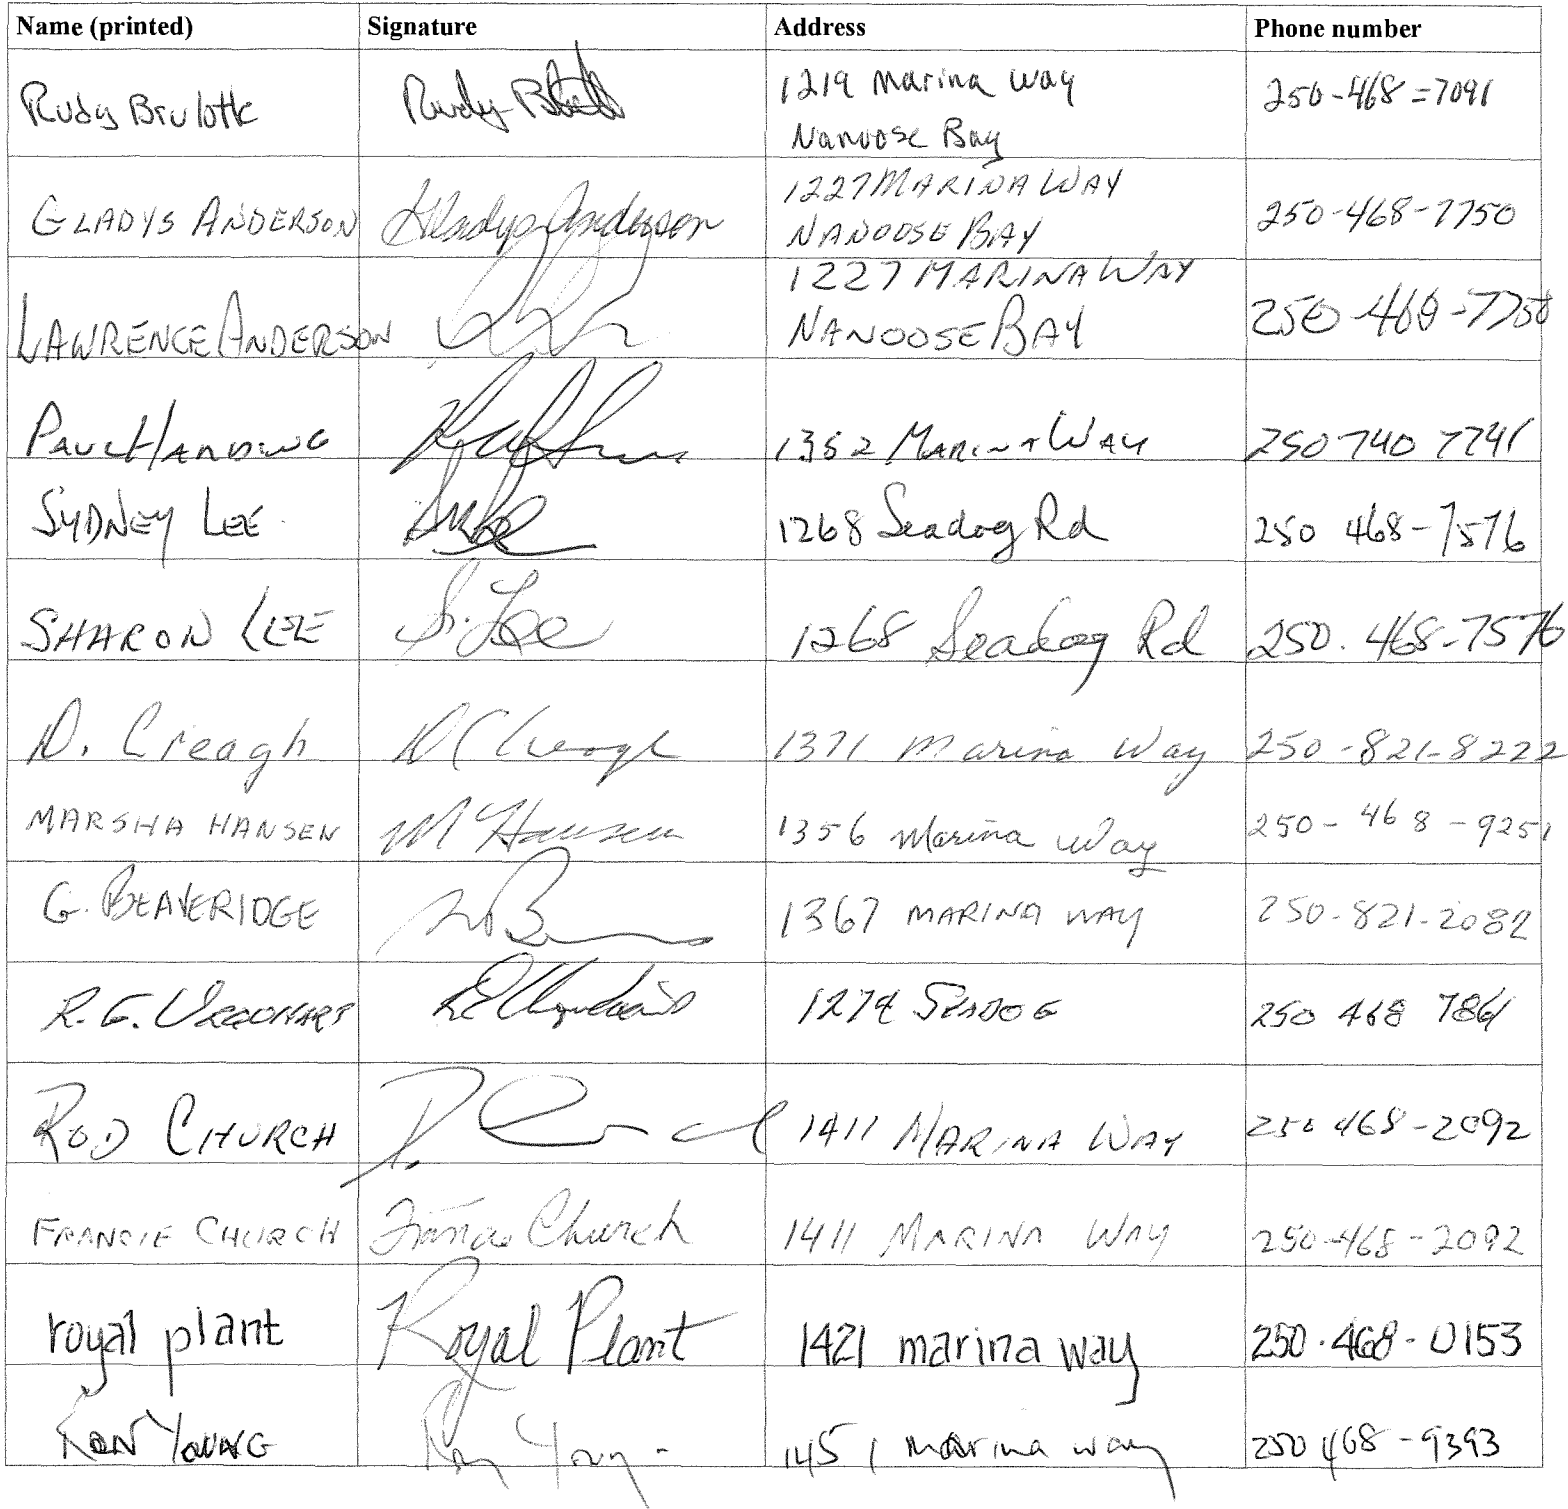 Name (printed) Signature Address Phone number
Rudy Brulotte Rudy 1219 Marina Way 250-468-7091
Nanoose Bay
GLADYS ANDERSON Gladys Anderson 1227 MARINA WAY 250-468-7750
NANOOSE BAY
LAWRENCE ANDERSON 1227 MARINA WAY 250-468-7750
NANOOSE BAY
PAUL 1352 MARINA WAY 250 740 7741
SYDNEY LEE 1268 Seadog Rd 250 468-7576
SHARON LEE S. Lee 1268 Seadog Rd 250.468-7576
D. Creagh D Creagh 1371 Marina Way 250-821-8222
MARSHA HANSEN M Hansen 1356 Marina Way 250-468-9251
G. BEAVERIDGE 1367 MARINA WAY 250-821-2082
R. G. URQUHART SEADOG 250 468 7861
ROD CHURCH 1411 MARINA WAY 250 468-2092
FRANCIE CHURCH Francie Church 1411 MARINA WAY 250-468-2092
royal plant Royal Plant 1421 marina way 250.468-0153
RON YOUNG Ron Young 1451 marina way 250 468-9393